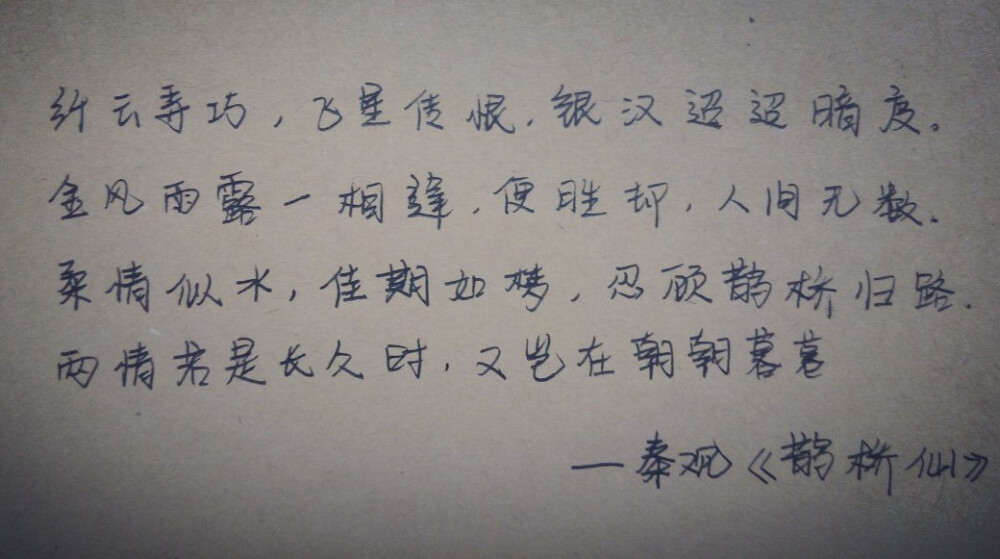 纤云弄巧，飞星传恨，银汉迢迢暗度。
金风雨露一相逢，便胜却，人间无数。
柔情似水，佳期如梦，忍顾鹊桥归路。
两情若是长久时，又岂在朝朝暮暮
——秦观《鹊桥仙》